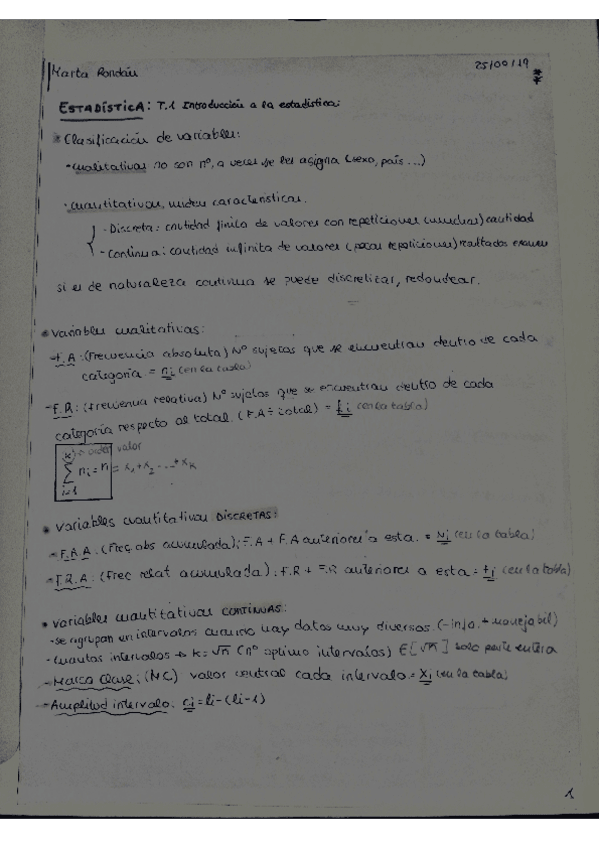 Marta Rondán
25/09/19
**
ESTADÍSTICA: T.1 Introducción a la estadística:
* Clasificación de variables:
- cualitativas no son nº, a veces se les asigna (sexo, país ...)
- cuantitativas, miden características.
- Discreta: cantidad finita de valores con repeticiones (muchas) cantidad
- Continua: cantidad infinita de valores (pocas repeticiones) resultados
si es de naturaleza continua se puede discretizar, redondear.
* variables cualitativas:
- F.A: (Frecuencia absoluta) Nº sujetos que se encuentran dentro de cada
categoría = ni (en la tabla)
- F.R: (frecuencia relativa) Nº sujetos que se encuentran dentro de cada
categoría respecto al total. (F.A ÷ total) = fi (en la tabla)
valor
k ∑ i=1 ni = n = x1 + x2 ... + xk
* variables cuantitativas DISCRETAS:
- F.A.A: (Frec. abs acumulada): F.A + F.A anteriores a esta. = Ni (en la tabla)
- F.R.A: (Frec relat acumulada): F.R + F.R anteriores a esta = Fi (en la tabla)
* variables cuantitativas CONTINUAS:
- se agrupan en intervalos cuando hay datos muy diversos. (- info. + manejabil)
- cuantos intervalos → k = √n (nº óptimo intervalos) E[√n] solo parte entera
- Marca Clase: (MC) valor central cada intervalo = Xi (en la tabla)
- Amplitud intervalo: ci = li - (li-1)
1